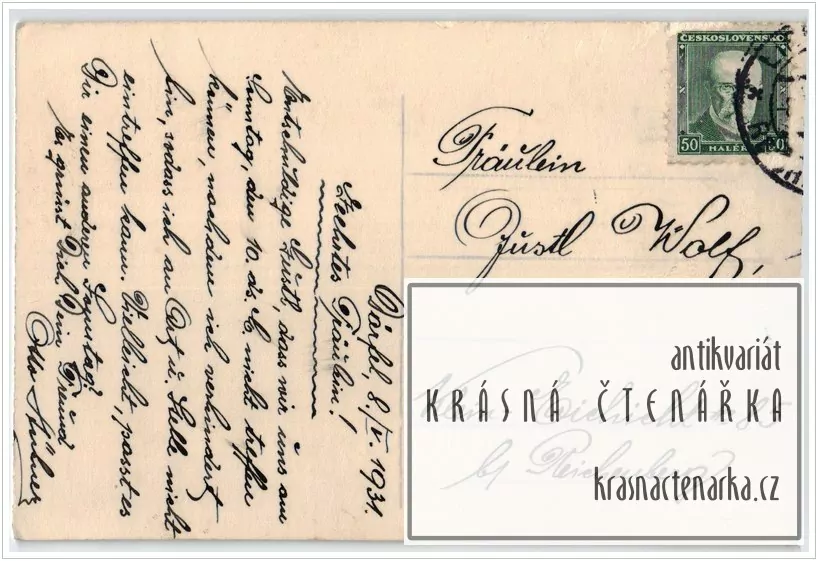 Dörfel, 8./V. 1931.
Liebstes Fräulein!
Entschuldige Justl, dass wir uns am
Sonntag, den 10. ds. M. nicht treffen
können, nachdem ich verhindert
bin, sodass ich an Ort u. Stelle nicht
eintreffen kann. Vielleicht, passt es
Dir einen anderen Sonntag!
Es grüsst Dich Dein Freund
Otto
ČESKOSLOVENSKO
50 HALÉŘ 50
Fräulein
Justl Wolf,
bei Reichenberg
antikvariát
KRÁSNÁ ČTENÁŘKA
krasnactenarka.cz